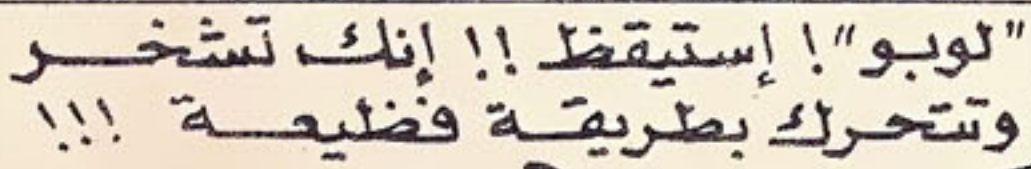 "لوبو"! إستيقظ !! إنك تشخر
وتتحرك بطريقة فظيعة !!!